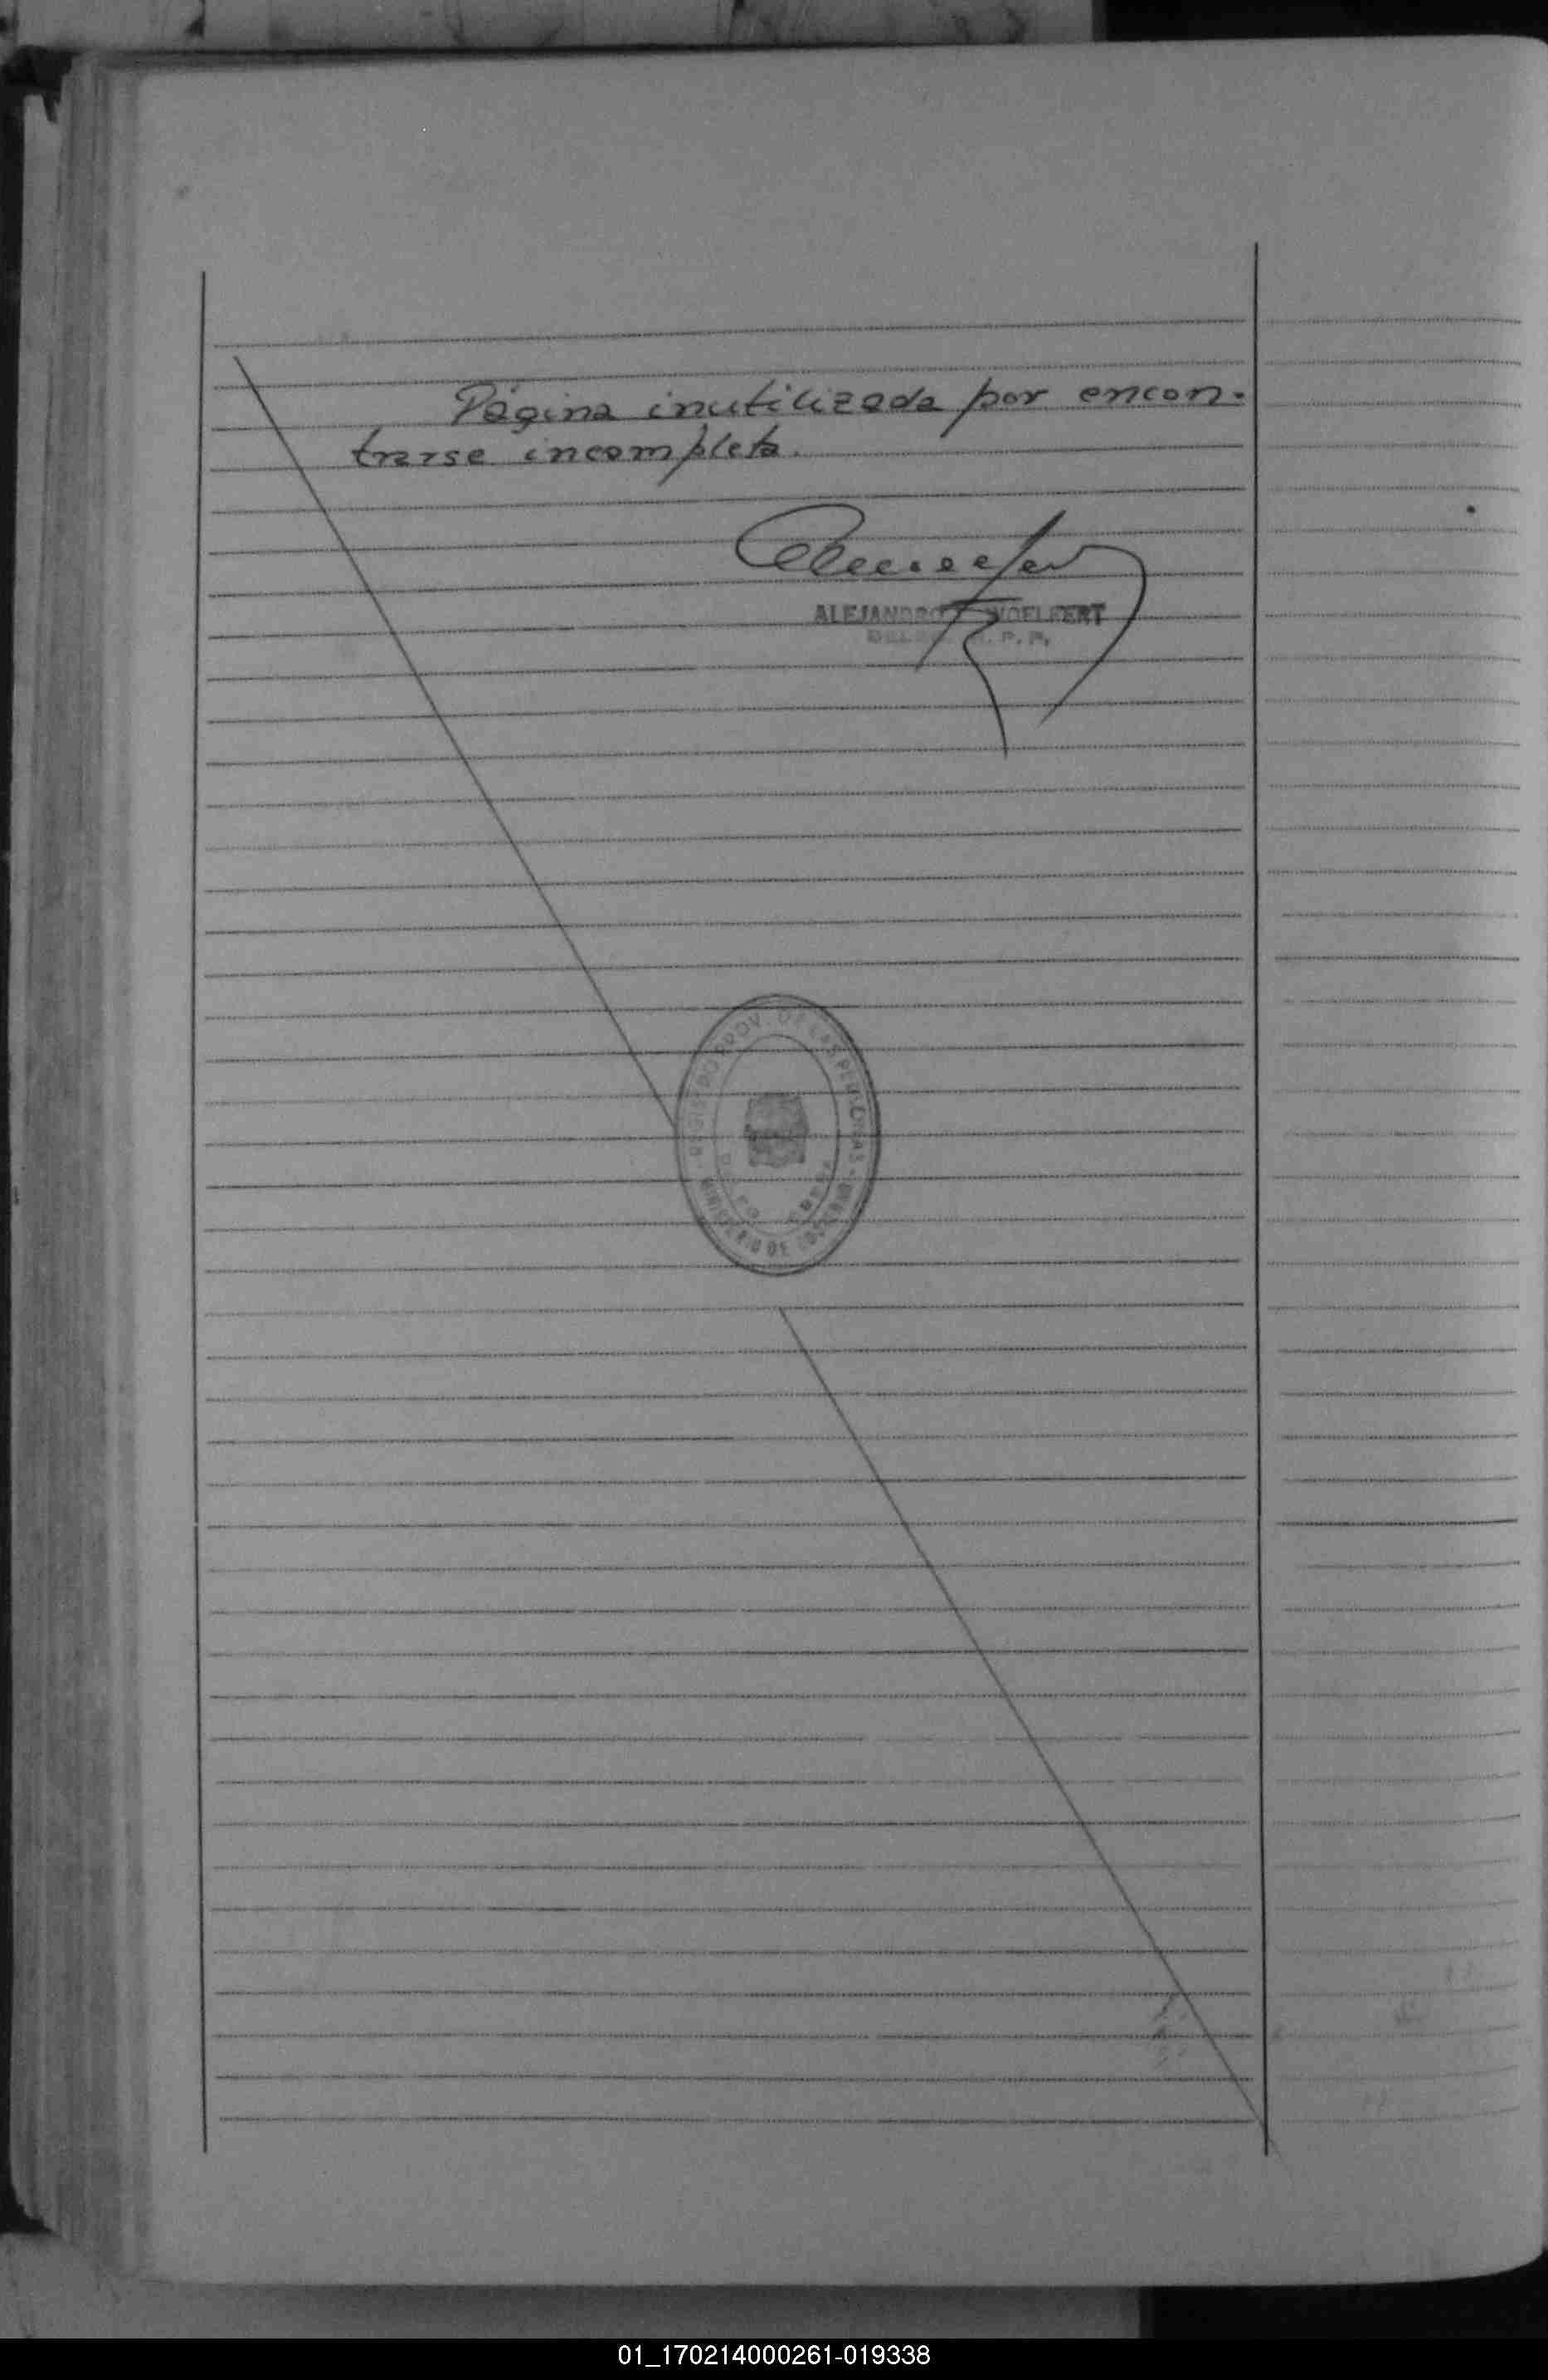 Página inutilizada por encon-
trarse incompleta.
ALEJANDRO WOELFERT
R. P. P.
REGISTRO PROV. DE LAS PERSONAS
MINISTERIO DE GOBIERNO
01_170214000261-019338